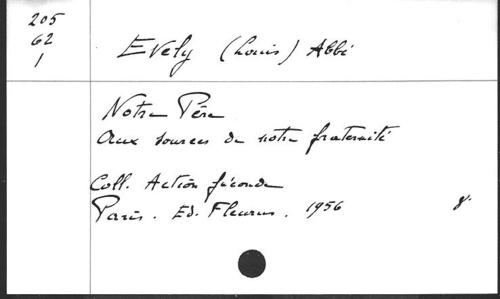 205
62
1
Evely (Louis) Abbé
Notre Père
Aux sources de notre fraternité
Coll. Action féconde
Paris. Ed. Fleurus. 1956